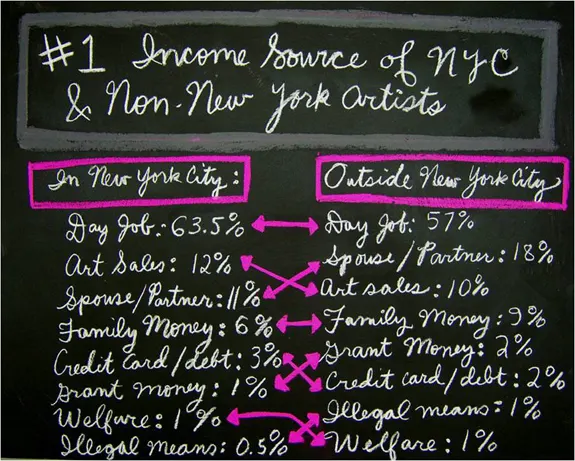 #1 Income Source of NYC
& Non-New York Artists
In New York City:
Day Job: 63.5%
Art Sales: 12%
Spouse/Partner: 11%
Family Money: 6%
Credit card/debt: 3%
Grant Money: 1%
Welfare: 1%
Illegal Means: 0.5%
Outside New York City
Day Job: 57%
Spouse/Partner: 18%
Art sales: 10%
Family Money: 9%
Grant Money: 2%
Credit card/debt: 2%
Illegal means: 1%
Welfare: 1%